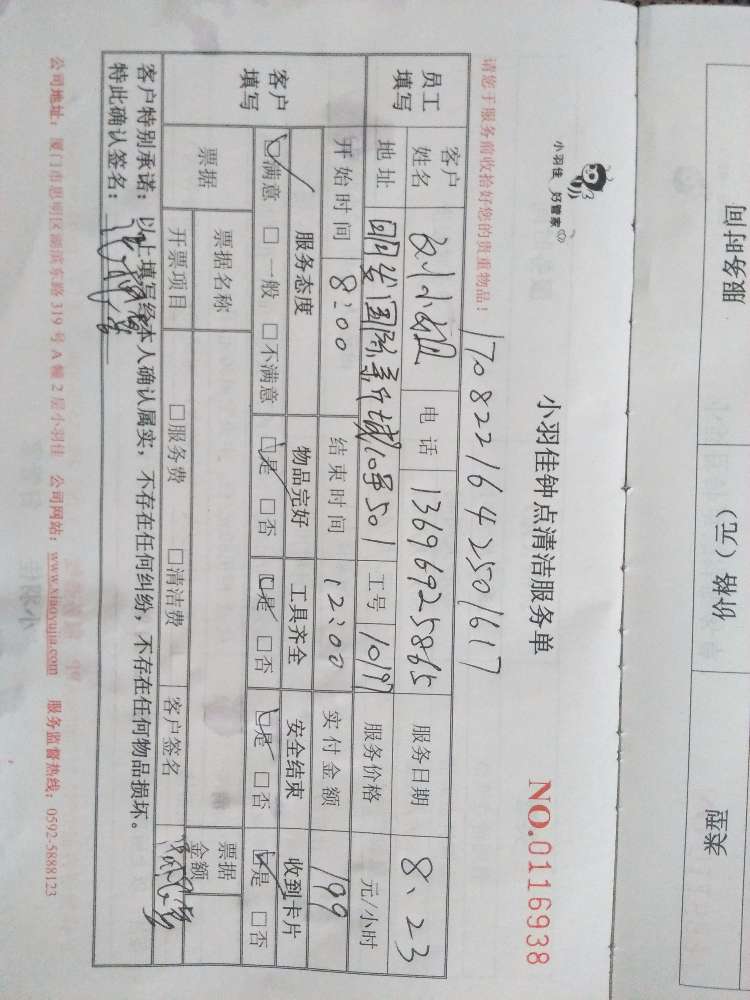 小羽佳 好管家
小羽佳钟点清洁服务单
NO.0116938
1708221642501617
请您于服务前收拾好您的贵重物品！
员工填写 客户姓名 刘小姐 电话 13696925865 服务日期 8、23
地址 国际新城10号501 工号 服务价格 元/小时
客户填写 开始时间 8:00 结束时间 12:00 实付金额 199
服务态度 物品完好 工具齐全 安全结束 收到卡片
☑满意 □一般 □不满意 ☑是 □否 ☑是 □否 ☑是 □否 ☑是 □否
票据 票据名称 票据金额
开票项目 □服务费 □清洁费 客户签名
客户特别承诺：以上填写经本人确认属实，不存在任何纠纷，不存在任何物品损坏。
特此确认签名：
公司地址：厦门市思明区湖滨东路319号A幢2层小羽佳 公司网站：www.xiaoyujia.com 服务监督热线：0592-5888123
服务时间 价格（元） 类型